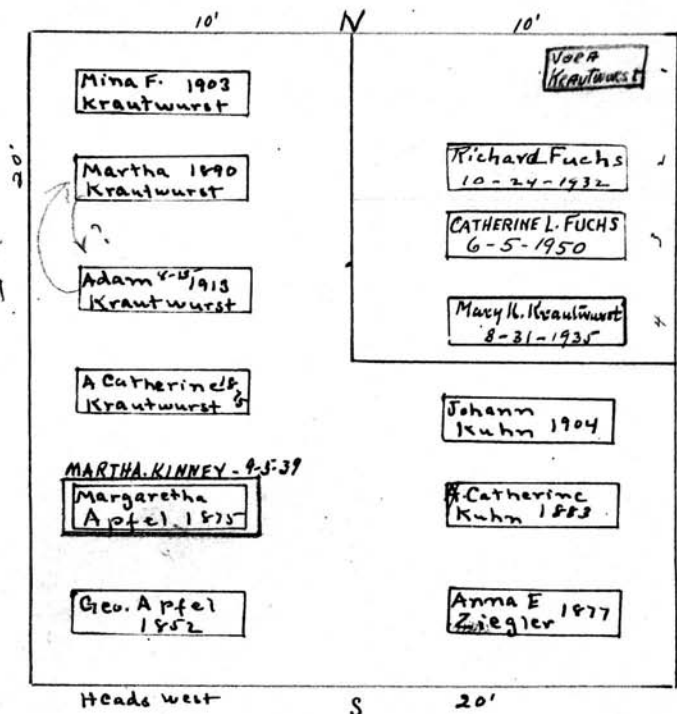 10'
N
10'
20'
Mina F. 1903
Krautwurst
Martha 1890
Krautwurst
?
Adam 8-15 1913
Krautwurst
A Catherine 18
Krautwurst
MARTHA. KINNEY - 9-5-39
Margaretha
Apfel 1875
Geo. Apfel
1852
Heads west
S
VORA
KRAUTWURST
Richard Fuchs
10-24-1932
CATHERINE L. FUCHS
6-5-1950
3
Mary K. Krautwurst
8-31-1935
4
Johann
Kuhn 1904
A. Catherine
Kuhn 1883
Anna E
Ziegler 1877
20'